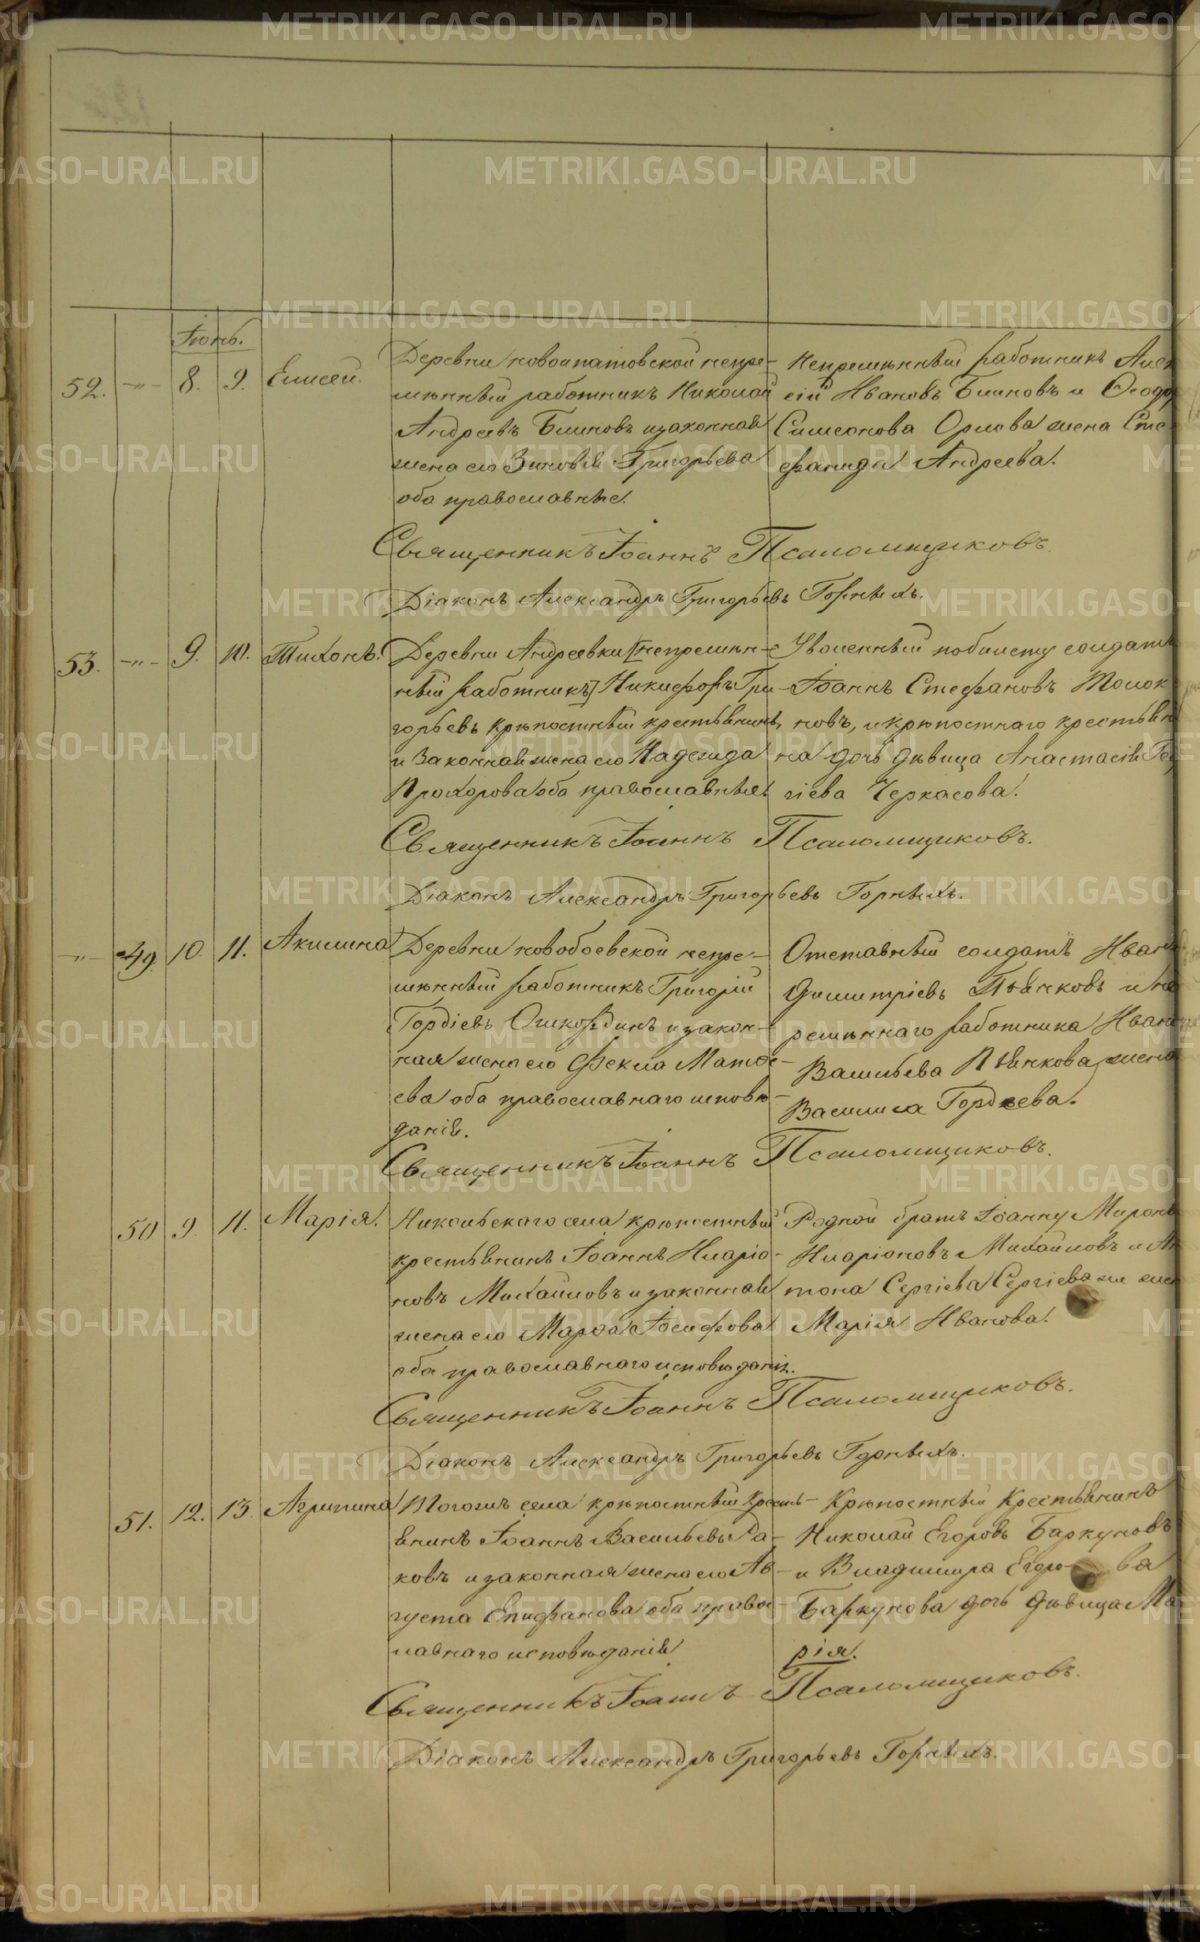 METRIKI.GASO-URAL.RU
Іюнь.
52. -"- 8. 9. Елисей.
Деревни новоипатовской непре-
мѣнный работникъ Николай
Андреевъ Блиновъ и законная
жена его Зиновія Григорьева
оба православные.
Непремѣнный работникъ Алек
сій Ивановъ Блиновъ и Ѳеодо
Симеонова Орлова жена Сте
фанида Андреева.
Священникъ Іоаннъ Псаломщиковъ.
Діаконъ Александръ Григорьевъ Горныхъ.
53. -"- 9. 10. Тихонъ.
Деревни Андреевки [непремѣн-
ный работникъ] Никифоръ Гри-
горьевъ крѣпостный крестьянинъ,
и законная жена его Надежда
Прохорова оба православныя.
Уволенный по билету солдатъ
Іоаннъ Стефановъ Толок
новъ, и крѣпостнаго крестьяни
на дочь дѣвица Анастасія
гіева Черкасова.
Священникъ Іоаннъ Псаломщиковъ.
Діаконъ Александръ Григорьевъ Горныхъ.
-"- 49 10. 11. Акилина
Деревни новобоевской непре-
мѣнный работникъ Григорій
Гордіевъ Ошкординъ и закон-
ная жена его Фекла Матѳе-
ева оба православнаго исповѣ-
данія.
Отставный солдатъ Иванъ
Димитріевъ Пьянковъ и не
ремѣннаго работника Ивана
Васильева Пьянкова жена
Василиса Гордѣева.
Священникъ Іоаннъ Псаломщиковъ.
50 9 11. Марія.
Никольскаго села крѣпостный
крестьянинъ Іоаннъ Иларіо-
новъ Михайловъ и законная
жена его Марѳа Іосифова
оба православнаго исповѣданія.
Родной братъ Іоанну Миронъ
Иларіоновъ Михайловъ и Ан
тона Сергіева жен
Марія Иванова.
Священникъ Іоаннъ Псаломщиковъ.
Діаконъ Александръ Григорьевъ Горныхъ.
51. 12. 13. Агрипина
Тогожъ села крѣпостный кресть-
янинъ Іоаннъ Васильевъ Ра-
ковъ и законная жена его Ав-
густа Епифанова оба правос-
лавнаго исповѣданія
Крѣпостный Крестьянинъ
Николай Егоровъ Баркуновъ
и Владимира Егоро-ва
Баркунова дочь дѣвица Ма
рія.
Священникъ Іоаннъ Псаломщиковъ.
Діаконъ Александръ Григорьевъ Горныхъ.